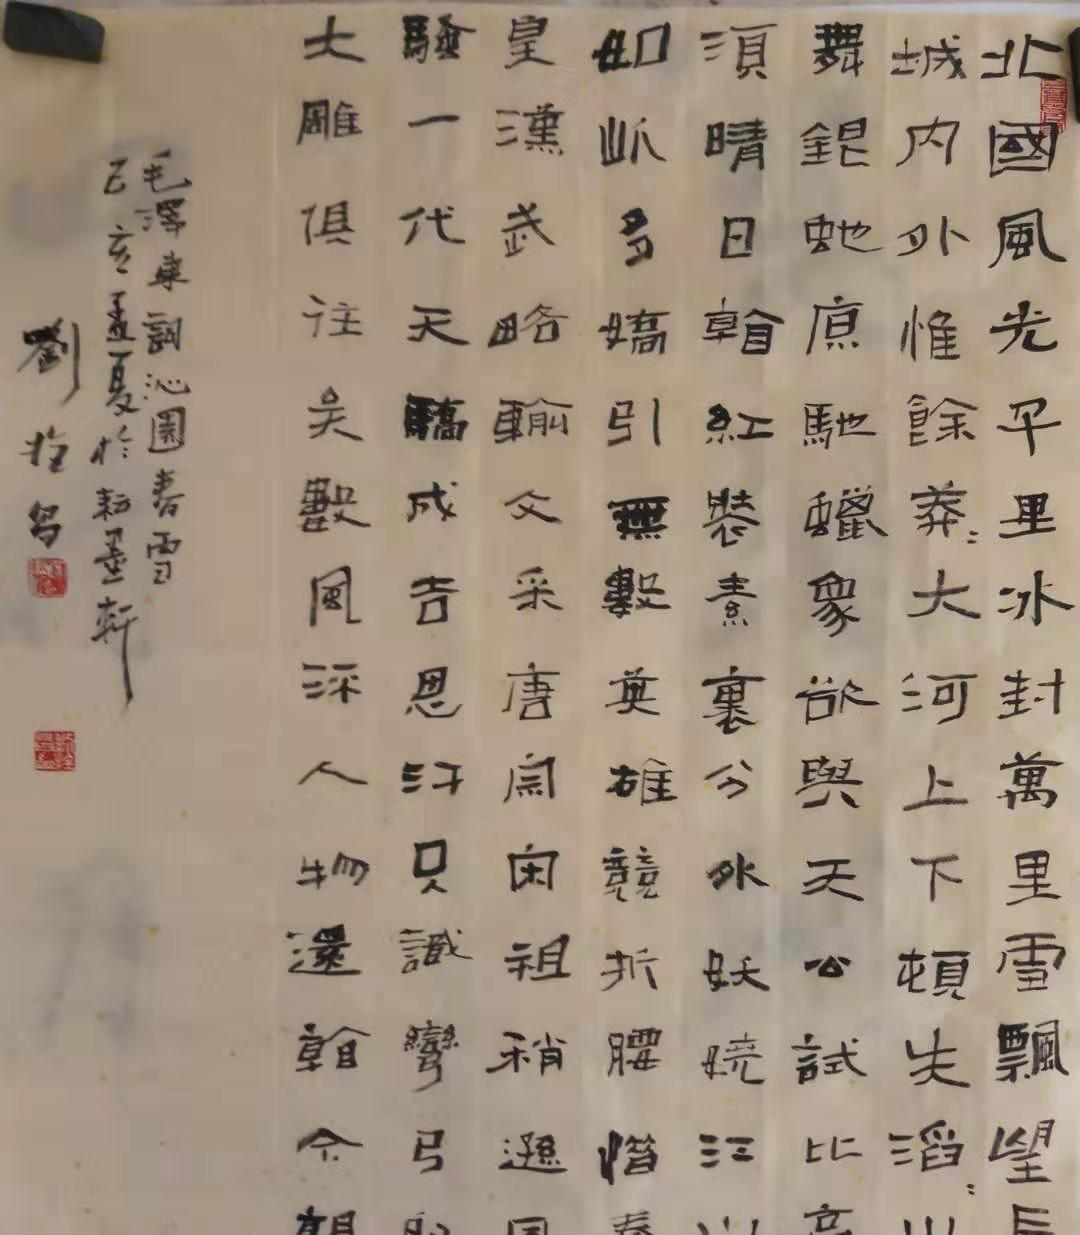 北國風光千里冰封萬里雪飄望長
城内外惟餘莽〻大河上下頓失滔〻山
舞銀虵原馳蠟象欲與天公試比高
須晴日看紅裝素裹分外妖嬈江山
如此多嬌引無數英雄競折腰惜秦
皇漢武略輸文采唐宗宋祖稍遜風
騷一代天驕成吉思汗只識彎弓射
大雕俱往矣數風流人物還看今朝
毛澤東詞沁園春雪
己亥孟夏於耘墨軒
劉